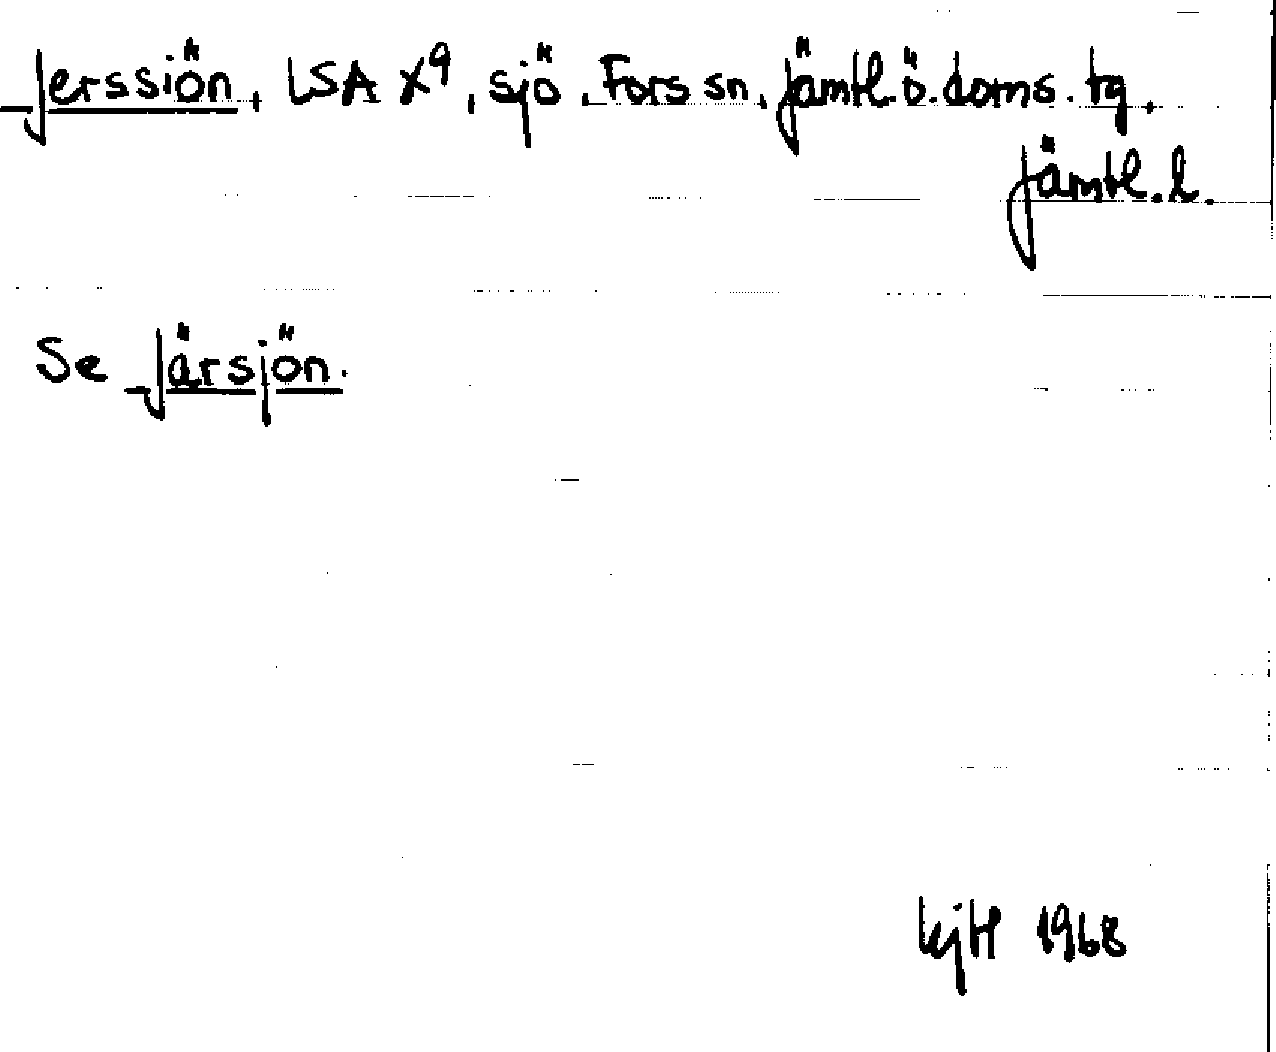 Jerssiön, LSA X⁹, sjö, Fors sn, Jämtl. ö. doms. tg,
Jämtl. l.
Se Järsjön.
1968